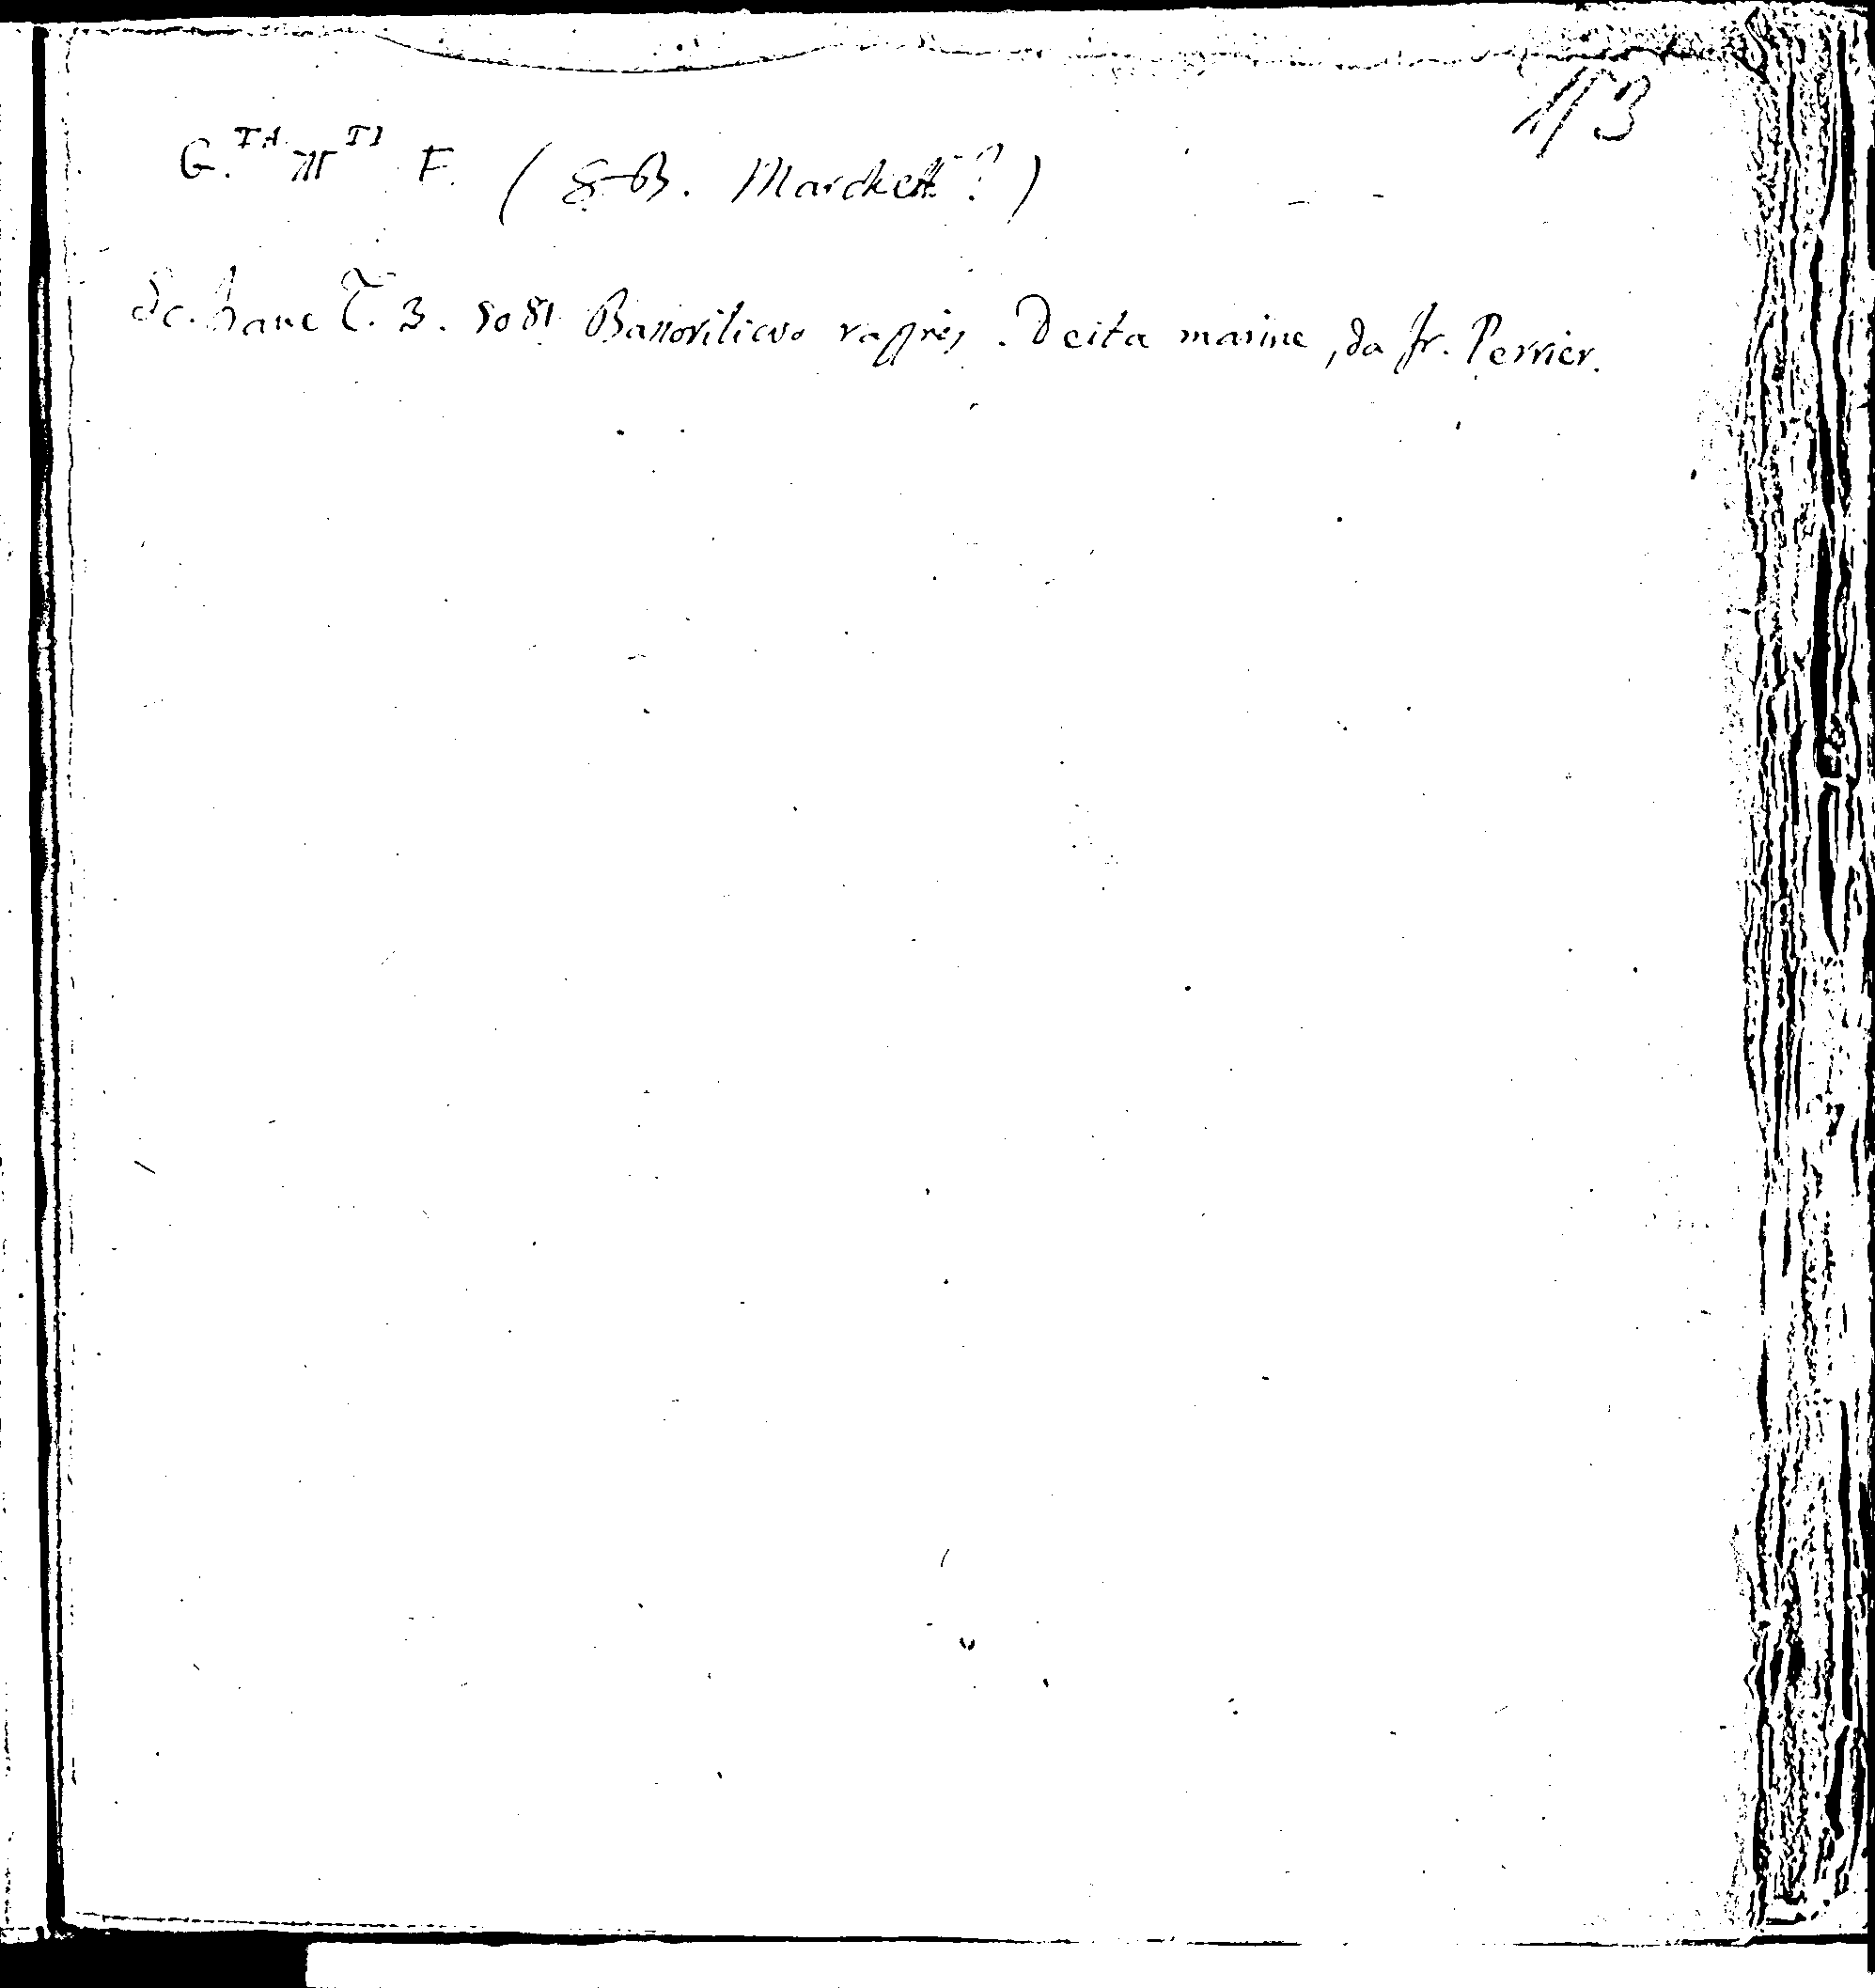 113
G.TA M TI F. (G-B. Marchett.?)
Sc. hanc T. 3. 5081 Bassorilievo rapres. Deita marine, da Fr. Perrier.